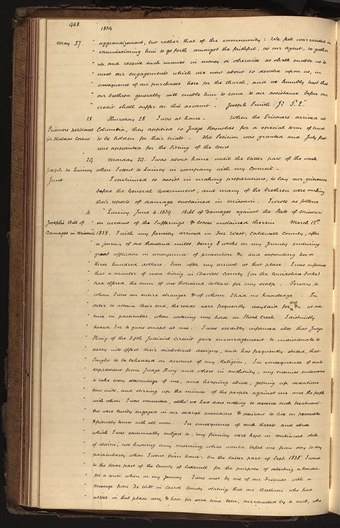 1839
May 27. aggrandizement, but rather that of the community: We feel warranted in
commissioning him to go forth amongst the faithful, as our agent, to gather
up and receive such means in money or otherwise as shall enable us to
meet our engagements which are now about to devolve upon us, in
consequence of our purchases here for the church, and we humbly trust that
our brethren generally will enable him to come to our assistance before our
credit shall suffer on this account. Joseph Smith Jr.
Tuesday 28 I was at home. When the Prisoners arrived in
Columbia, they applied to Judge Reynolds for a special term of
to be holden for their trials. The Petition was granted and July
was appointed for the sitting of the Court
29 Monday 29. I was about home until the latter part of the week
Joseph to Quincy when I went to Quincy in company with my Council.
June I continued to assist in making preparations, to lay our grievances
before the General Government, and many of the brethren were making
their reports of damage sustained in Missouri. I wrote as follows
4 Quincy June 4. 1839 Bill of Damages against the State of Missouri
Joseph's Bill of on account of the Sufferings & losses sustained therein. March 12th
Damages in Missouri 1838. With my family arrived in Far West, Caldwell County, after
a journey of one thousand miles being 8 weeks on my journey enduring
great affliction in consequence of persecution &c and expending two or
three hundred dollars. Soon after my arrival at that place I was informed
that a number of men living in Daviess County (on the Grindstone Forks)
had offered the sum of one thousand dollars for my scalp: Persons to
whom I was an entire stranger & of whom I had no knowledge. In
order to attain their end, the roads were frequently waylaid for me &c at one
time in particular, when watering my horse on Shoal Creek I distinctly
heard 3 or 4 guns snapt at me. I was credibly informed also that Judge
King of the 5th Judicial Circuit gave encouragement to individuals to
carry into effect their diabolical designs, and has frequently stated, that
I ought to be beheaded on account of my Religion. In consequence of such
expressions from Judge King and others in authority, my enemies endeavored
to take every advantage of me, and heaping abuse, getting up vexatious
law suits, and stirring up the minds of the people against me and the people
with whom I was connected, altho' we had done nothing to deserve such treatment
but were busily engaged in our several avocations & desirous to live on peaceable
& friendly terms with all men. In consequence of such threats and abuse
which I was continually subject to, my family were kept in continual state
of alarm, not knowing any morning what would befal me from day to day
particularly when I went from home: In the latter part of Sept. 1838. I went
to the lower part of the County of Caldwell for the purpose of selecting a location
for a town when on my journey I was met by one of our friends with a
message from De Witt in Carroll County stating that our Brethren who had
settled in that place were & have for some time been, surrounded by a mob, who